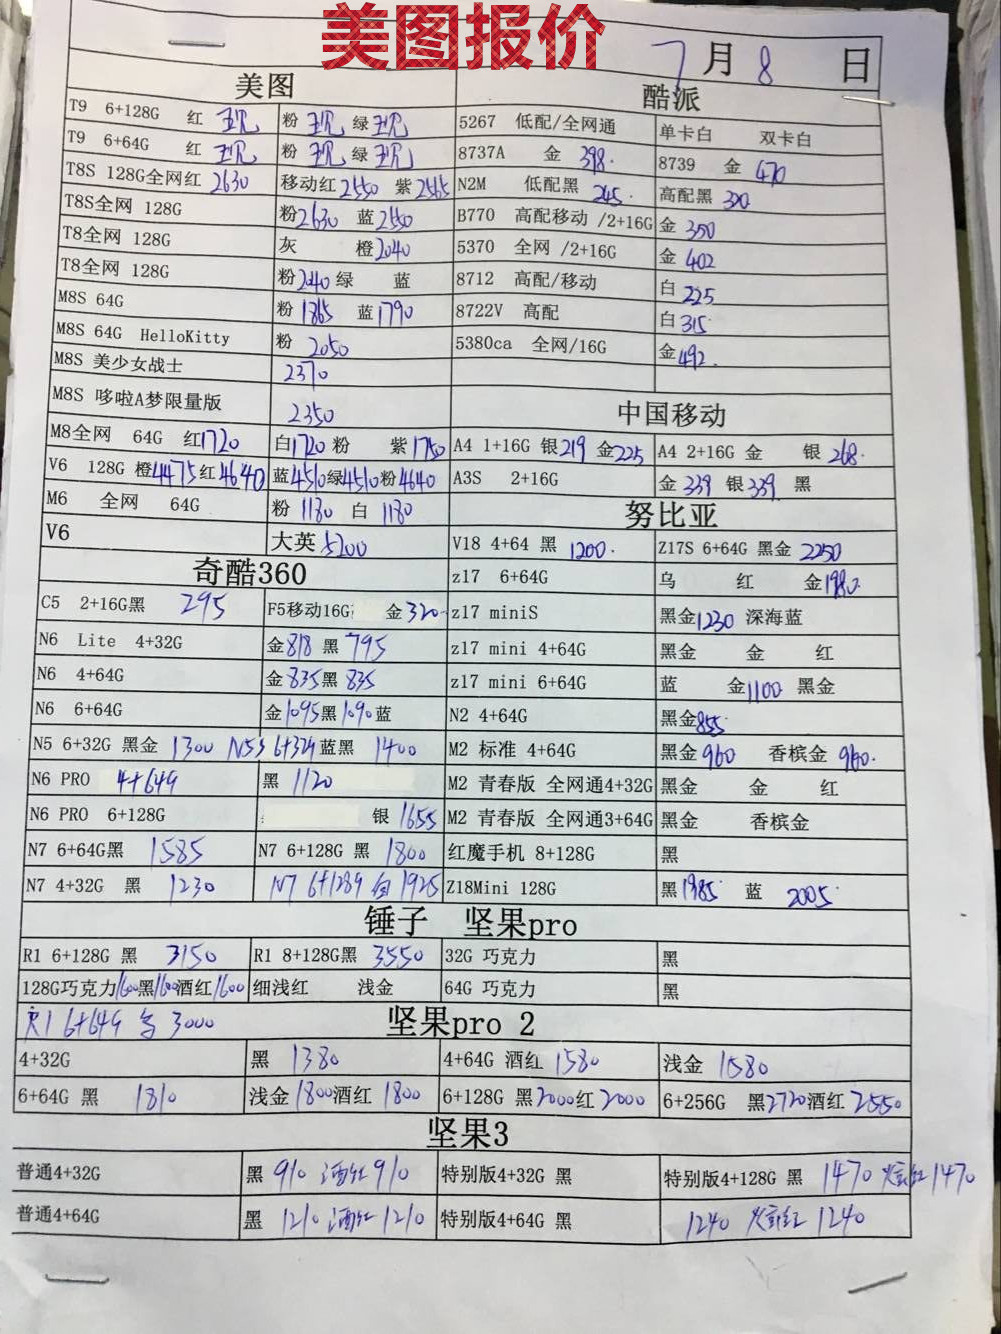 美图报价
7月8日
美图
T9 6+128G 红 现 粉 现 绿 现
T9 6+64G 红 现 粉 现 绿 现
T8S 128G全网红 2630 移动红 2550 紫 2565
T8S全网 128G 粉 2630 蓝 2550
T8全网 128G 灰 橙 2040
T8全网 128G 粉 2040 绿 蓝
M8S 64G 粉 1865 蓝 1790
M8S 64G HelloKitty 粉 2050
M8S 美少女战士 2370
M8S 哆啦A梦限量版 2350
M8全网 64G 红 1720 白 1720 粉 紫 1750
V6 128G 橙 4475 红 4640 蓝 4510 绿 4510 粉 4640
M6 全网 64G 粉 1180 白 1180
V6 大英 5200
奇酷360
C5 2+16G黑 295 F5移动16G 金 320
N6 Lite 4+32G 金 818 黑 795
N6 4+64G 金 835 黑 835
N6 6+64G 金 1095 黑 1090 蓝
N5 6+32G 黑金 1300 N5S 6+32G 蓝黑 1400
N6 PRO 4+64G 黑 1120
N6 PRO 6+128G 银 1655
N7 6+64G黑 1585 N7 6+128G 黑 1800
N7 4+32G 黑 1230 N7 6+128G 白 1925
酷派
5267 低配/全网通 单卡白 双卡白
8737A 金 398 8739 金 470
N2M 低配黑 245 高配黑
B770 高配移动 /2+16G 金 350
5370 全网 /2+16G 金 402
8712 高配/移动 白 225
8722V 高配 白 315
5380ca 全网/16G 金 492
中国移动
A4 1+16G 银 219 金 225 A4 2+16G 金 银 268
A3S 2+16G 金 339 银 339 黑
努比亚
V18 4+64 黑 1200 Z17S 6+64G 黑金 2250
z17 6+64G 乌 红 金 1980
z17 miniS 黑金 1230 深海蓝
z17 mini 4+64G 黑金 金 红
z17 mini 6+64G 蓝 金 1100 黑金
N2 4+64G 黑金 855
M2 标准 4+64G 黑金 960 香槟金 960
M2 青春版 全网通4+32G 黑金 金 红
M2 青春版 全网通3+64G 黑金 香槟金
红魔手机 8+128G 黑
Z18Mini 128G 黑 1985 蓝 2005
锤子 坚果pro
R1 6+128G 黑 3150 R1 8+128G黑 3550 32G 巧克力 黑
128G巧克力 1600 黑 1600 酒红 1600 细浅红 浅金 64G 巧克力 黑
R1 6+64G 3000
坚果pro 2
4+32G 黑 1380 4+64G 酒红 1580 浅金 1580
6+64G 黑 1810 浅金 1800 酒红 1800 6+128G 黑 2000 红 2000 6+256G 黑 2720 酒红 2550
坚果3
普通4+32G 黑 910 酒红 910 特别版4+32G 黑 特别版4+128G 黑 1470 炫红 1470
普通4+64G 黑 1210 酒红 1210 特别版4+64G 黑 1240 炫红 1240